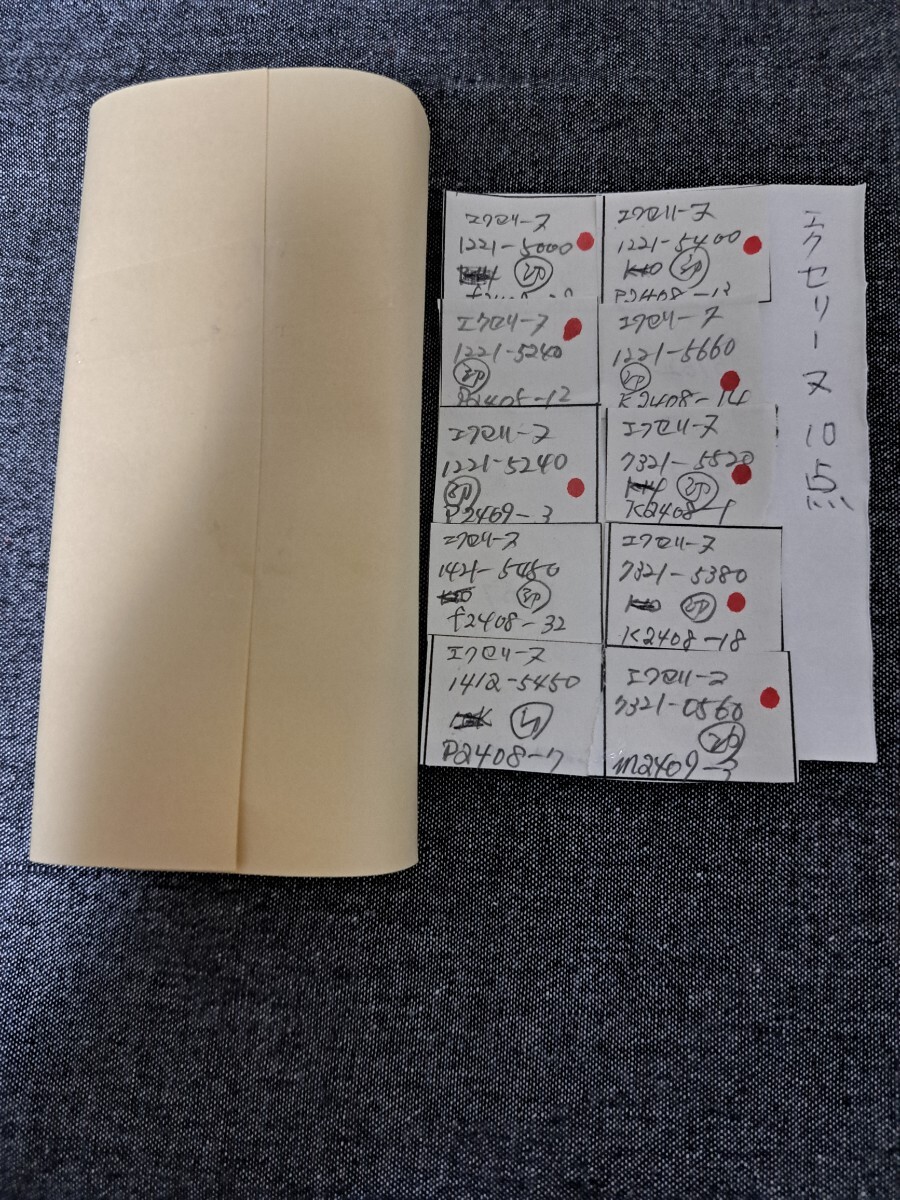 エクセリーヌ
1221-5000
エクセリーヌ
1221-5240
P2408-12
エクセリーヌ
1221-5240
P2409-3
エクセリーヌ
1421-5050
f2408-32
エクセリーヌ
1412-5450
P2408-7
エクセリーヌ
1221-5400
P2408-13
エクセリーヌ
1221-5660
K2408-14
エクセリーヌ
7321-5520
K2408-1
エクセリーヌ
7321-5380
K2408-18
エクセリーヌ
7321-0560
m2409-3
エクセリーヌ 10点